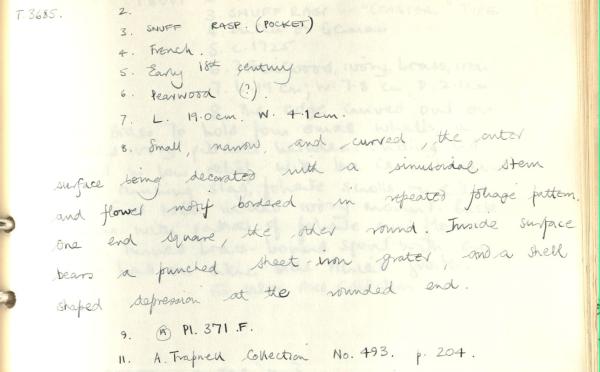 T.3685. 2.
3. SNUFF RASP. (POCKET)
4. French.
5. Early 18th century
6. Pearwood (?).
7. L. 19.0cm. W. 4.1cm.
8. Small, narrow, and curved, the outer
surface being decorated with a sinusoidal stem
and flower motif bordered in repeated foliage pattern.
One end square, the other round. Inside surface
bears a punched sheet-iron grater, and a shell
shaped depression at the rounded end.
9. (A) Pl. 371.F.
11. A. Trapnell Collection No. 493. p. 204.